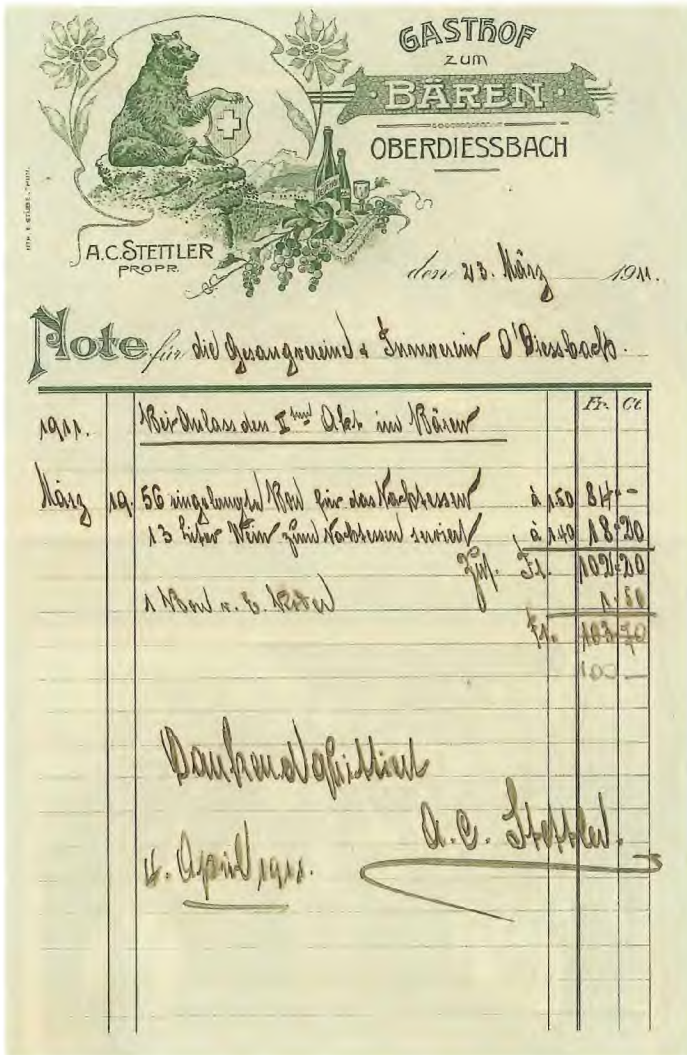 GASTHOF
ZUM
BÄREN
OBERDIESSBACH
A.C. STETTLER
PROPR.
den 23. März 1911.
Note für die Gesangvereine & Turnverein O'Diessbach.
Fr. Ct.
1911. Bei Anlass des II ten Akt im Bären
März 19. 56 eingelangte Bon für das Nachtessen à 1.50 84 -
13 Liter Wein zum Nachtessen serviert à 1.40 18.20
Zus. Fr. 102.20
1 Bon v. E. 1.50
Fr. 103.70
100 -
Dankend quittiert
A. C. Stettler.
4. April 1911.